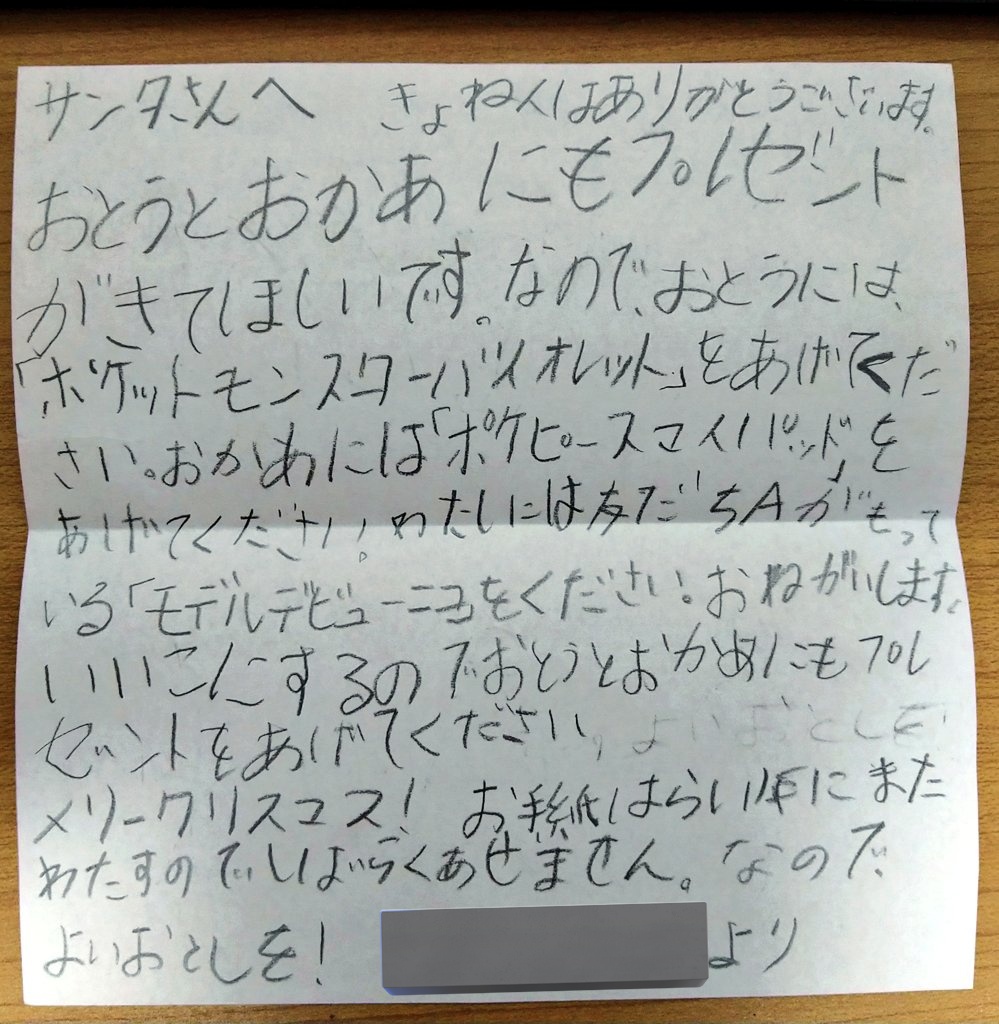 サンタさんへ きょねんはありがとうございます。
おとうとおかあにもプレゼント
がきてほしいです。なので、おとうには、
「ポケットモンスターバイオレット」をあげてくだ
さい。おかあには「ポケピースマイパッド」を
あげてください!わたしには友だちAがもって
いる「モデルデビューニコ」をください。おねがいします。
いいこにするのでおとうとおかあにもプレ
ゼントをあげてください。よいおとしを
メリークリスマス! お手紙はらい年にまた
わたすのでしばらくあせません。なので、
よいおとしを! より